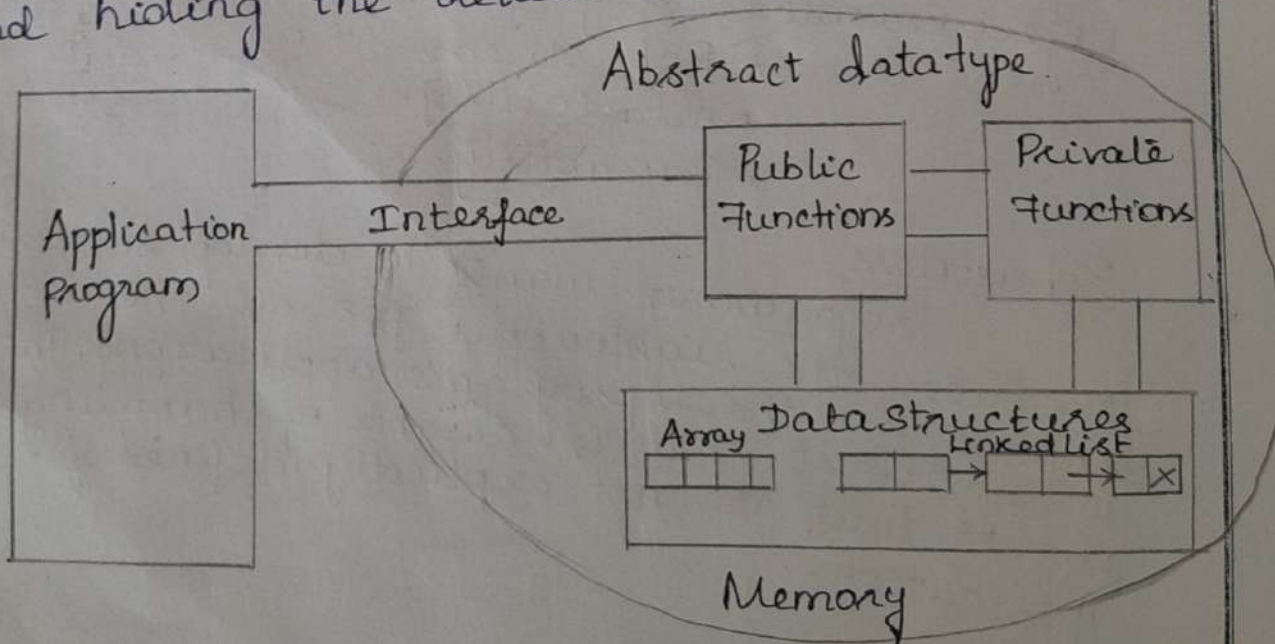 hiding the
Abstract datatype.
Application
program
Interface
Public
Functions
Private
Functions
Data Structures
Array
Linked List
X
Memory